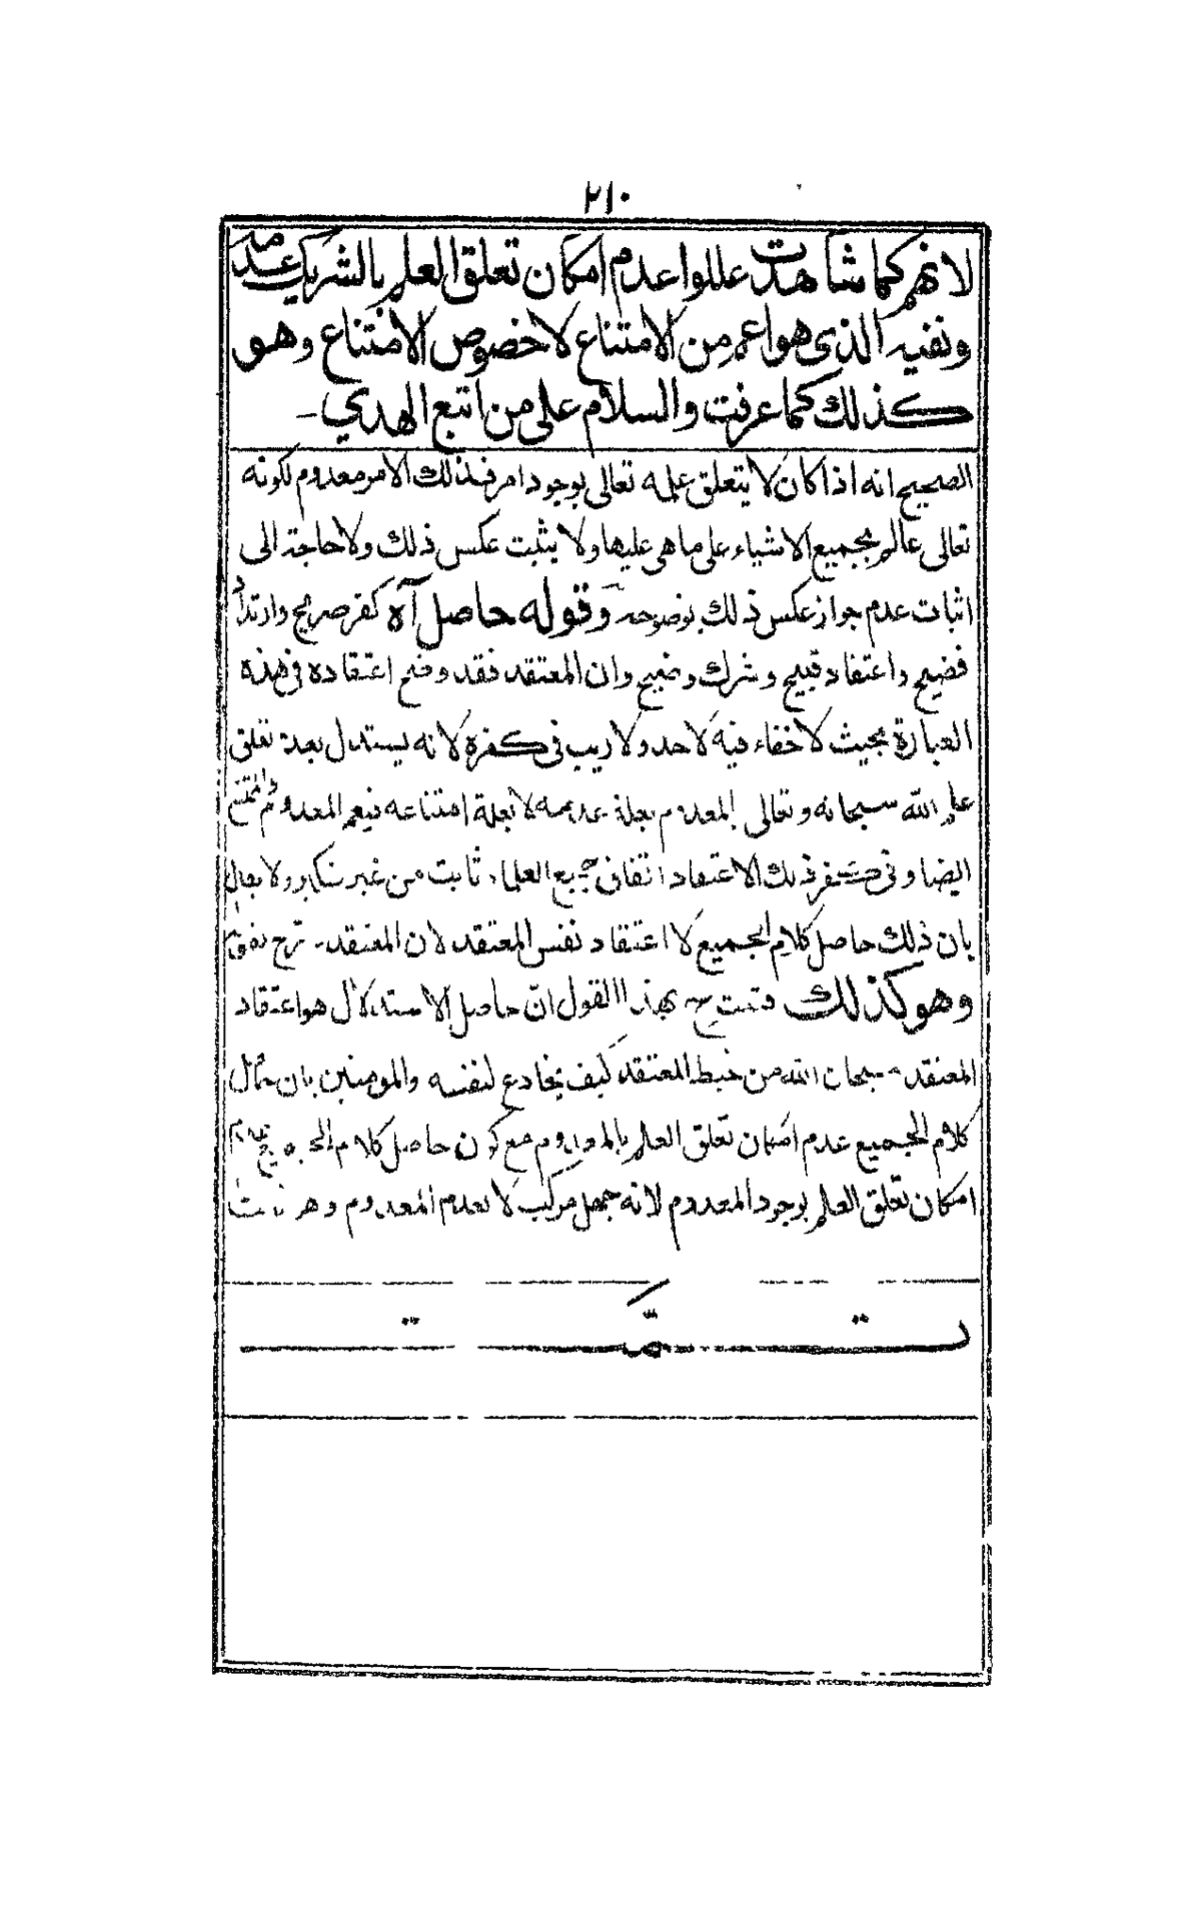 ٢١٠
لانهم كما شاهدت عللوا عدم امكان تعلق العلم بالشريك بعدمه
ونفيه الذى هو اعم من الامتناع لا خصوص الامتناع وهو
كذلك كما عرفت والسلام على من اتبع الهدي
الصحيح انه اذا كان لا يتعلق علمه تعالى بوجود امر فذلك الامر معدوم لكونه
تعالى عالم بجميع الاشياء على ما هى عليها ولا يثبت عكس ذلك ولا حاجة الى
اثبات عدم جواز عكس ذلك بوضوحه وقوله حاصل آه كفر صريح وارتداد
فضيح واعتقاد قبيح وشرك وضيح وان المعتقد فقد وضح اعتقاده فى هذه
العبارة بحيث لا خفاء فيه لاحد ولا ريب فى كفره لانه يستدل بعدم تعلق
علم الله سبحانه وتعالى بالمعدوم بعلة عدمه لا بعلة امتناعه فيعم المعدوم الممتنع
ايضا وفى كفر ذلك الاعتقاد اتفاق جميع العلماء ثابت من غير نكير ولا يقال
بان ذلك حاصل كلام الجميع لا اعتقاد نفس المعتقد لان المعتقد صرح بقوله
وهو كذلك بهذا القول ان حاصل الاستدلال هو اعتقاد
المعتقد سبحان الله من خبط المعتقد كيف يخادع لنفسه والمومنين بان حاصل
كلام الجميع عدم امكان تعلق العلم بالمعدوم مع كون حاصل كلام الجميع عدم
امكان تعلق العلم بوجود المعدوم لانه جهل مركب لا بعدم المعدوم وهو ثابت
تمت